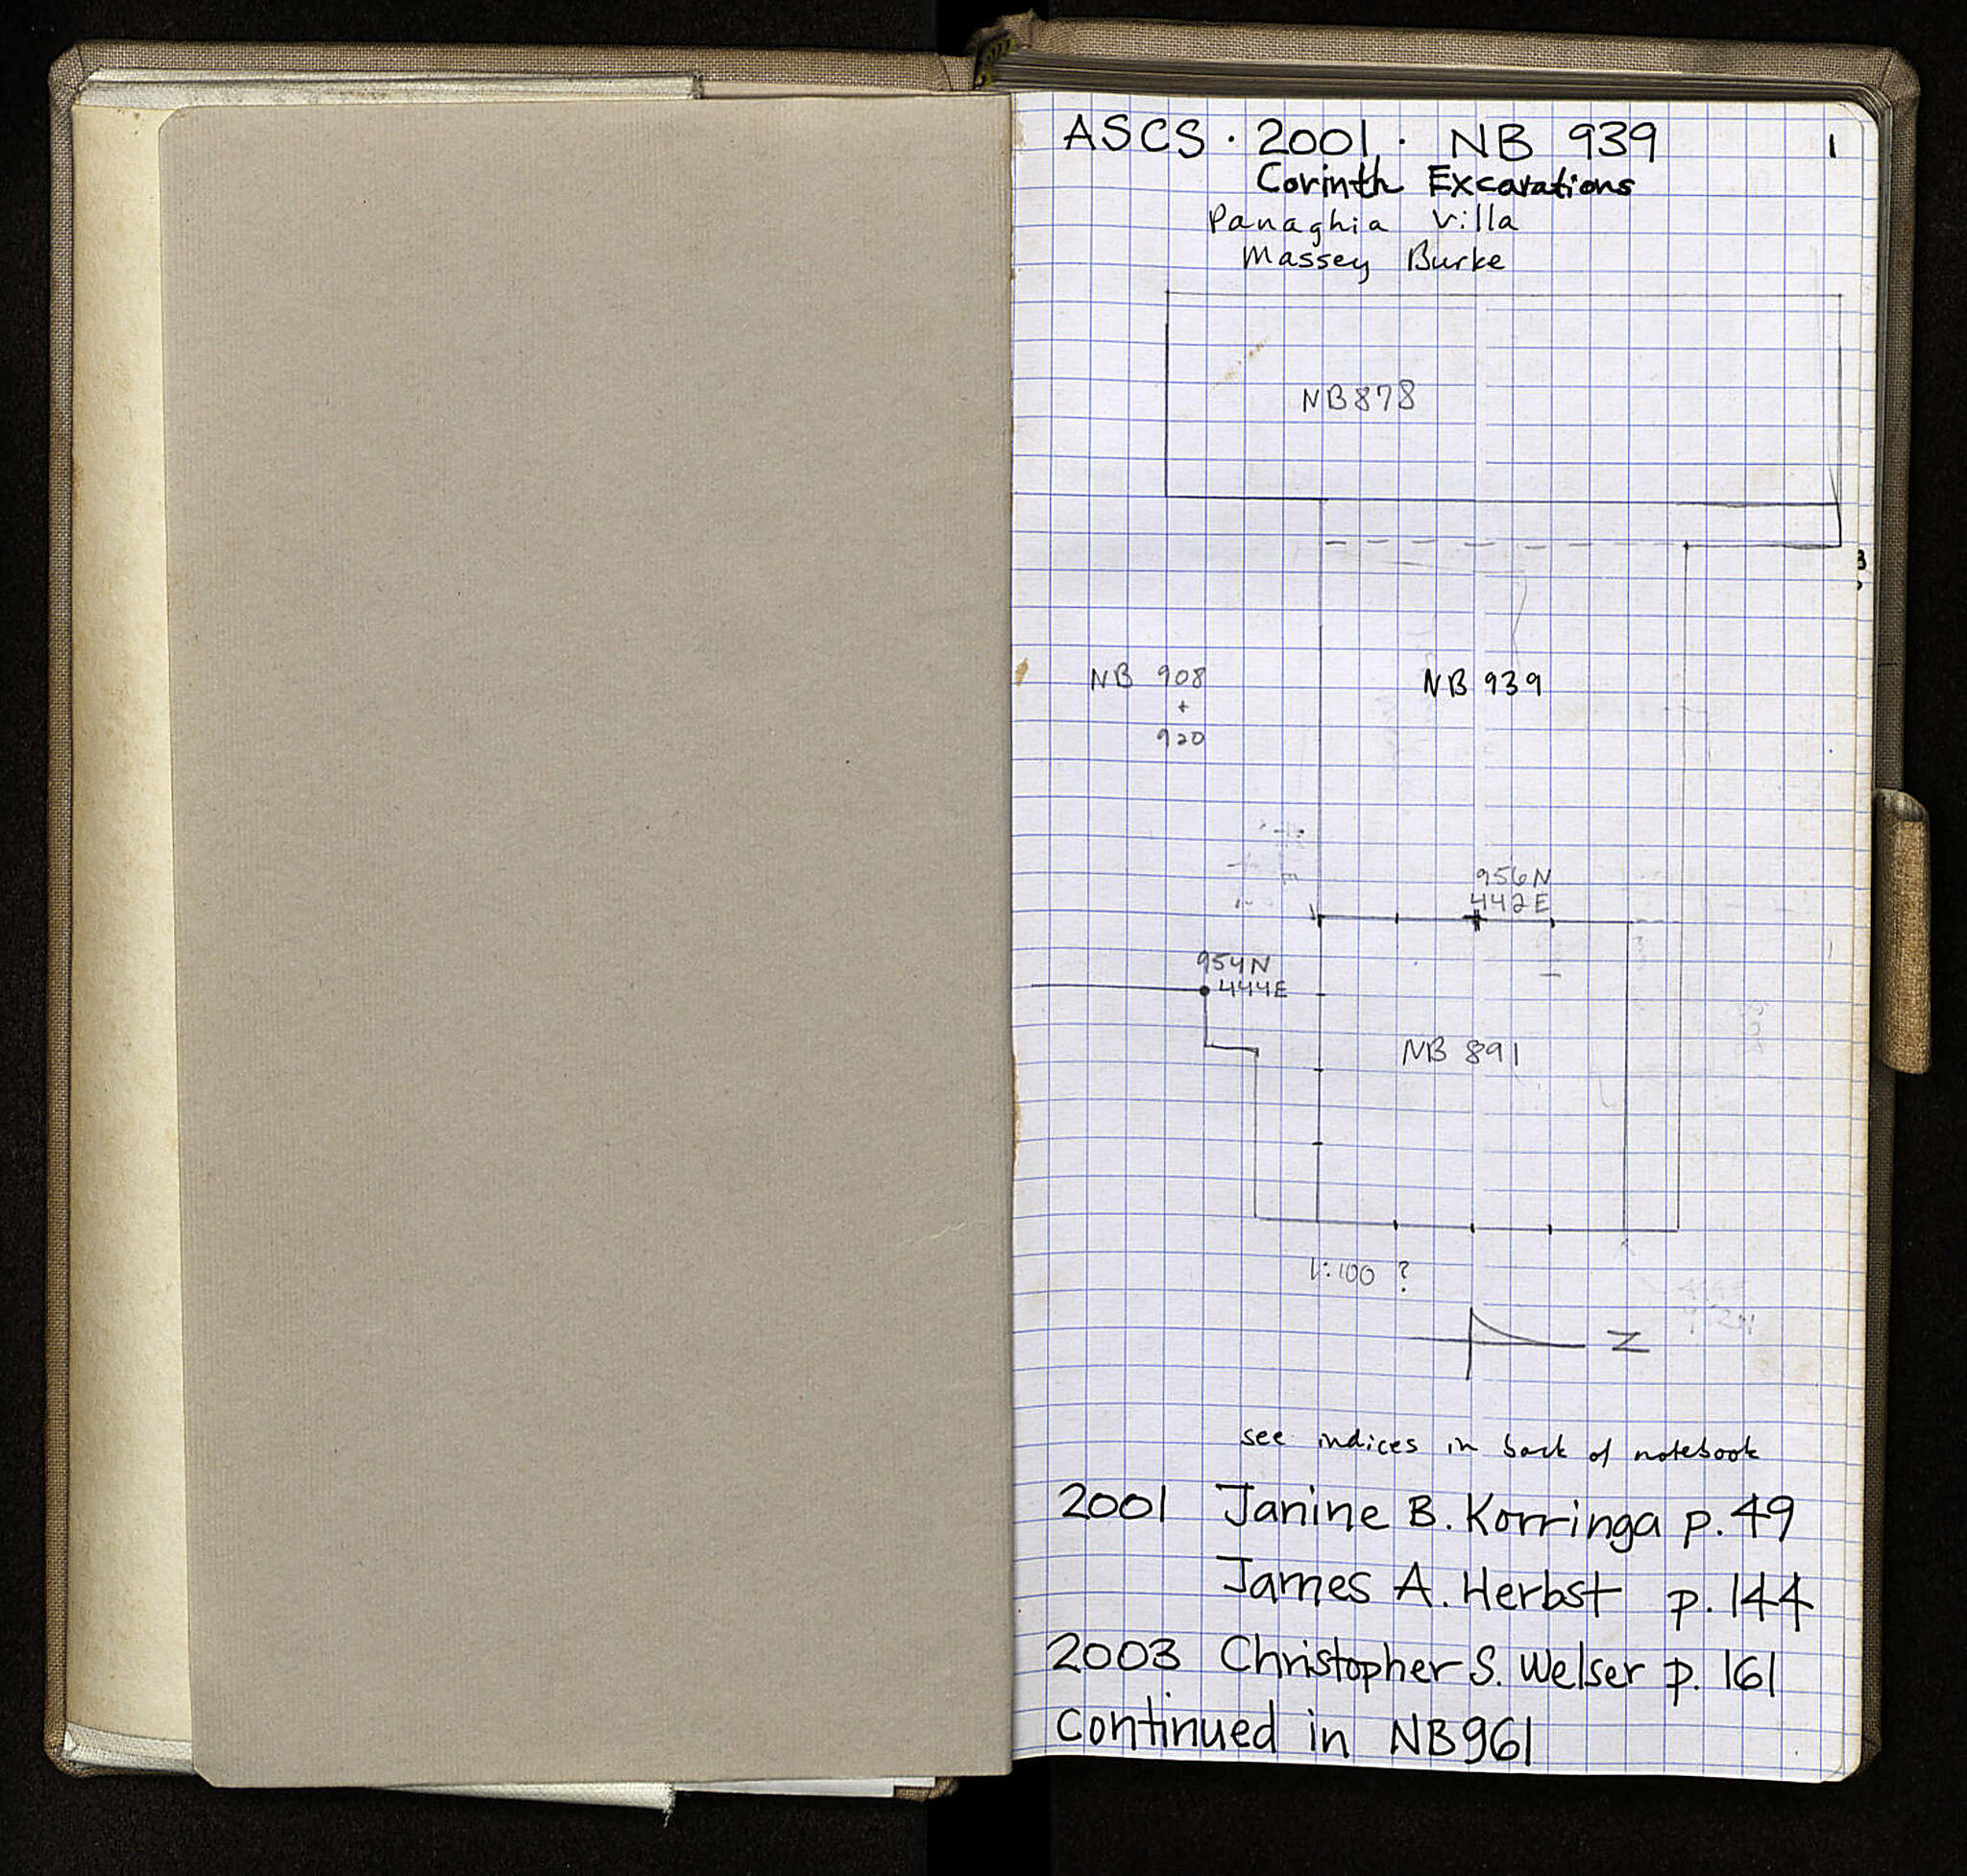 ASCS · 2001 · NB 939 1
Corinth Excavations
Panaghia Villa
Massey Burke
NB 878
NB 908
+
920
NB 939
956N
442E
954N
444E
NB 891
1:100 ?
N
see indices in back of notebook
2001 Janine B. Korringa p. 49
James A. Herbst p. 144
2003 Christopher S. Welser p. 161
Continued in NB961